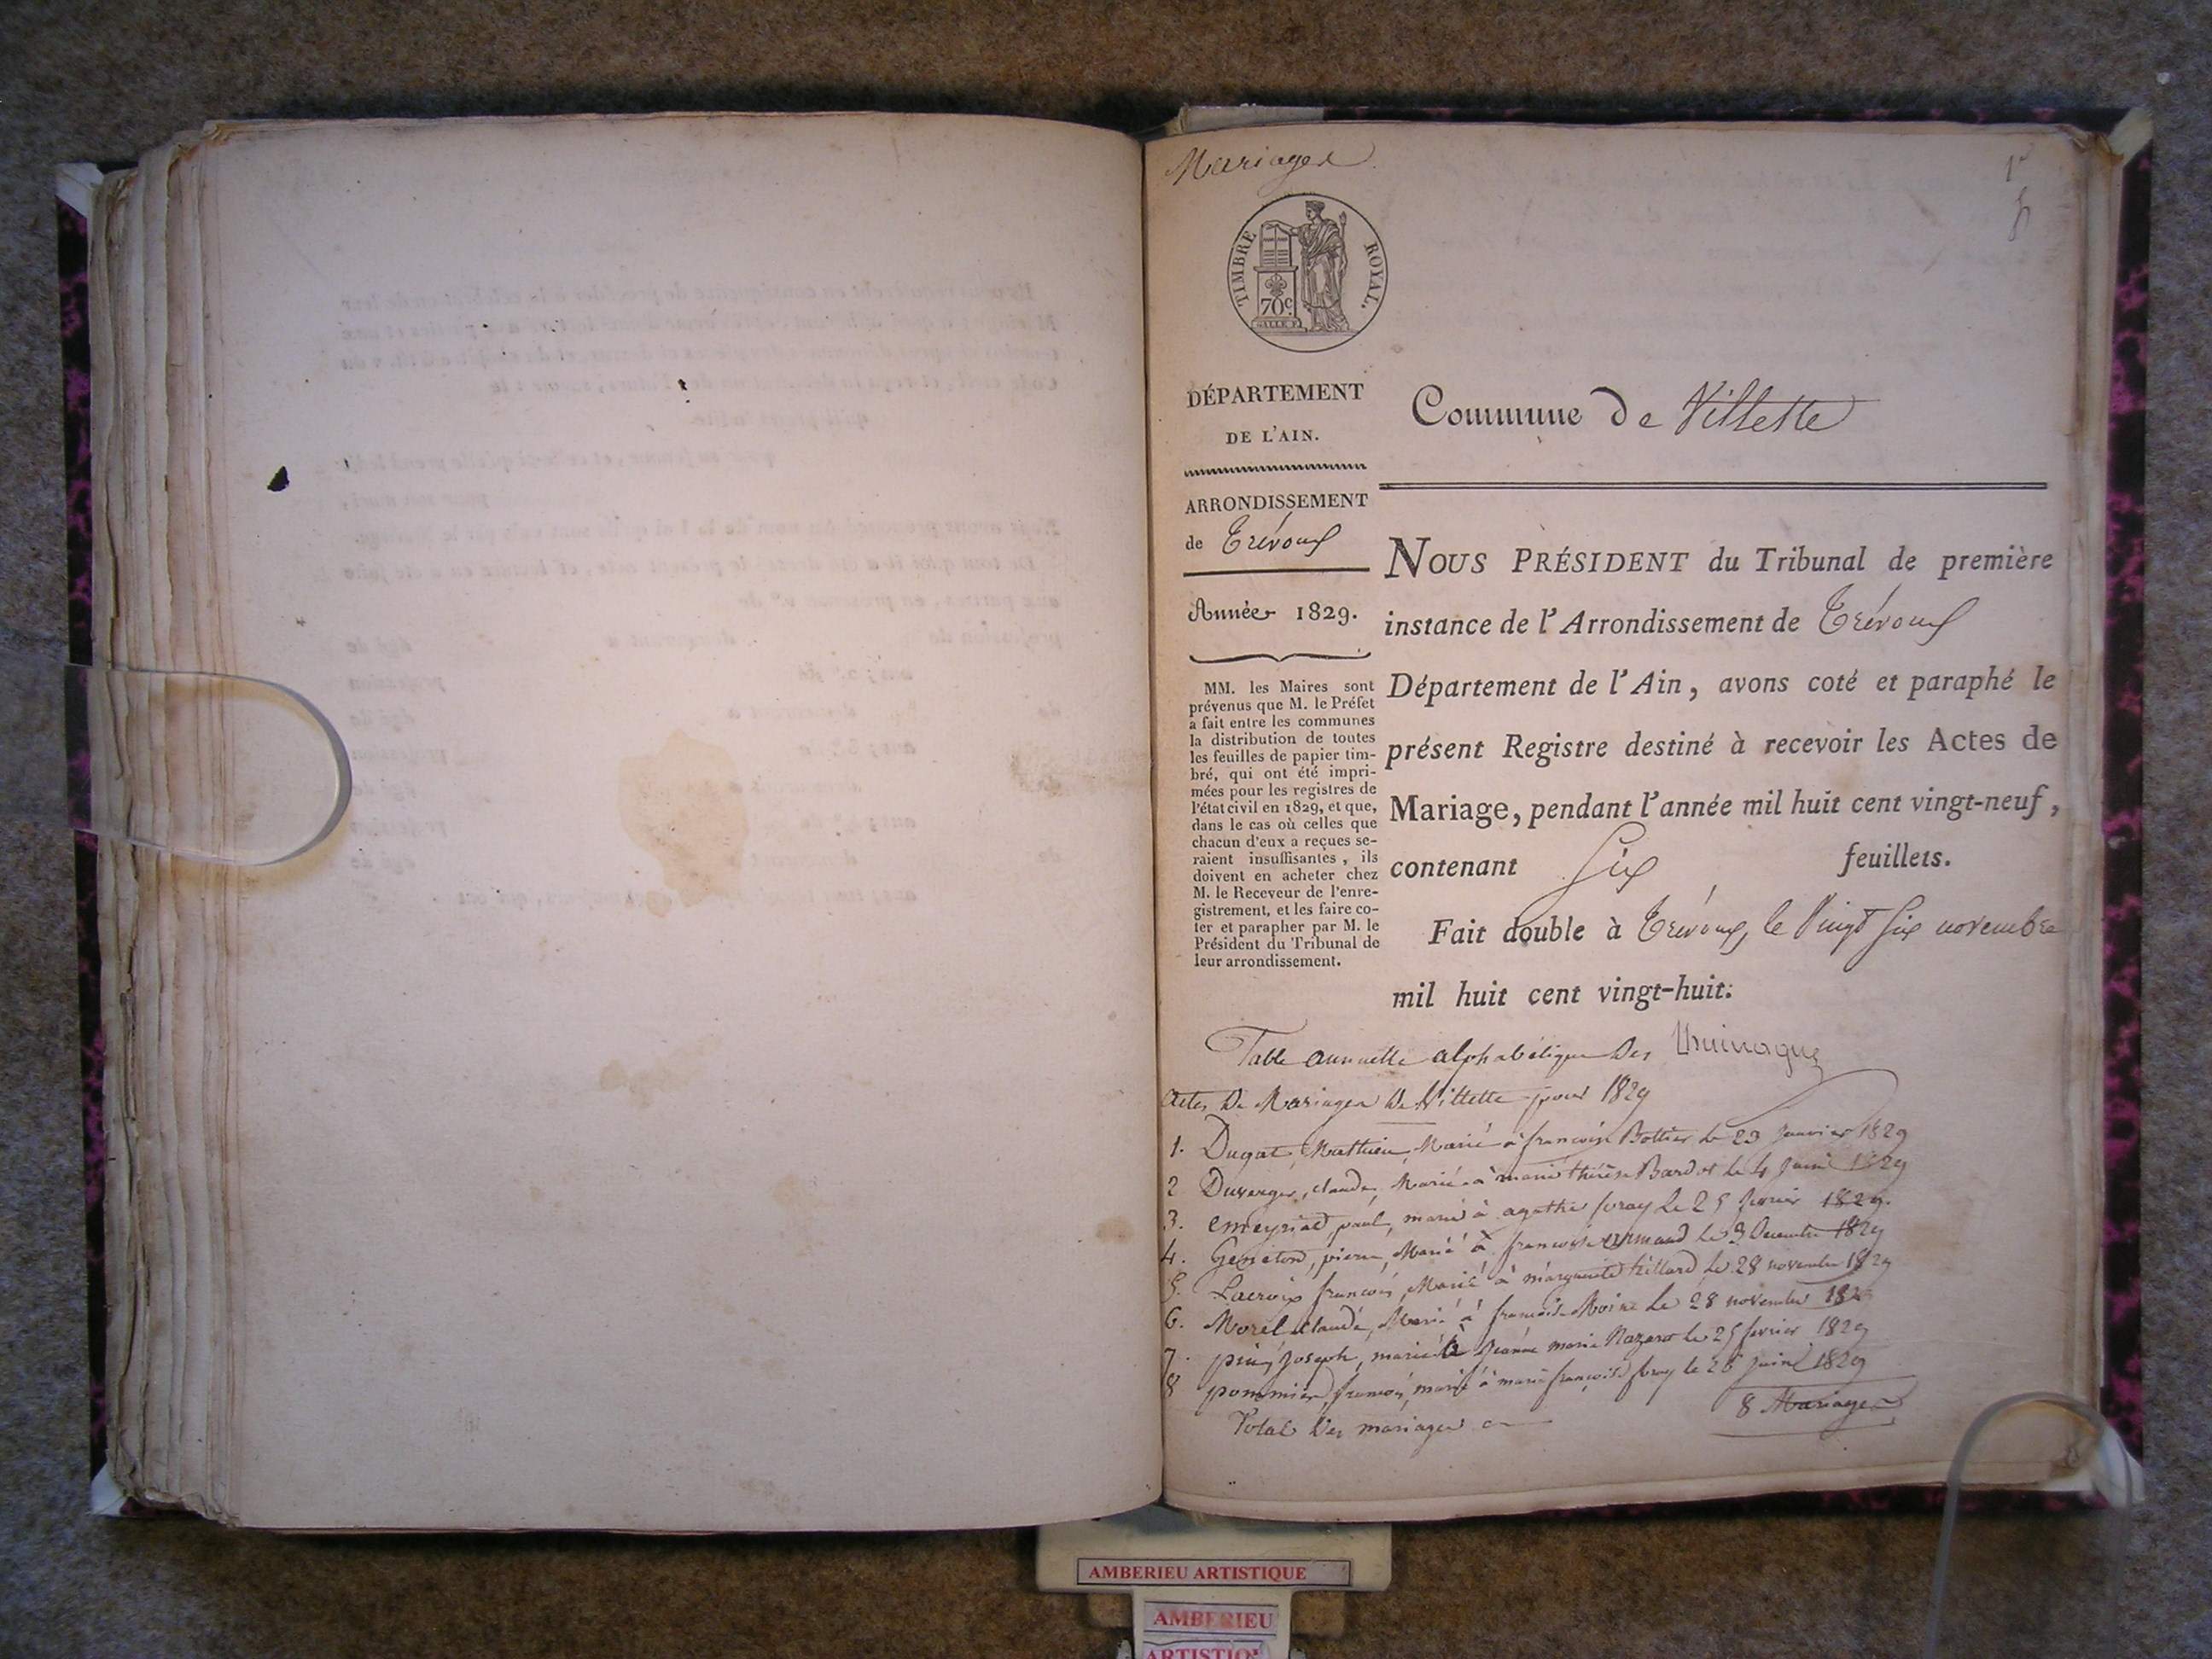 Mariages
TIMBRE ROYAL.
70c
DÉPARTEMENT
DE L'AIN.
ARRONDISSEMENT
de Trévoux
Année 1829.
MM. les Maires sont
prévenus que M. le Préfet
a fait entre les communes
la distribution de toutes
les feuilles de papier tim-
bré, qui ont été impri-
mées pour les registres de
l'état civil en 1829, et que,
dans le cas où celles que
chacun d'eux a reçues se-
raient insuffisantes, ils
doivent en acheter chez
M. le Receveur de l'enre-
gistrement, et les faire co-
ter et parapher par M. le
Président du Tribunal de
leur arrondissement.
Commune de Villette
NOUS PRÉSIDENT du Tribunal de première
instance de l'Arrondissement de Trévoux
Département de l'Ain, avons coté et paraphé le
présent Registre destiné à recevoir les Actes de
Mariage, pendant l'année mil huit cent vingt-neuf,
contenant Six feuillets.
Fait double à Trévoux, le Vingt Six novembre
mil huit cent vingt-huit.
Table annuelle alphabétique des
actes de Mariages de Villette pour 1829
1. Dugat, Matthieu, Marié à françoise Bottier le 23 Janvier 1829
2 Duverger, claude, Marié à marie thérèse Bardot le 4 Juin 1829
3. paul, marié à agathe le 25 fevrier 1829.
4. pierre, Marié à françoise armand le 3 Decembre 1829
5. Lacroix françois, Marié à marguerite le 28 novembre 1829
6. Morel claude, Marié à françoise Moine le 28 novembre 182
7. Joseph, marié à Jeanne marie Nazaret le 25 fevrier 1829
8 pommier, françois, marié à marie françoise le 26 Juin 1829
Total des mariages 8 Mariages
AMBERIEU ARTISTIQUE
AMBERIEU
ARTISTIQUE